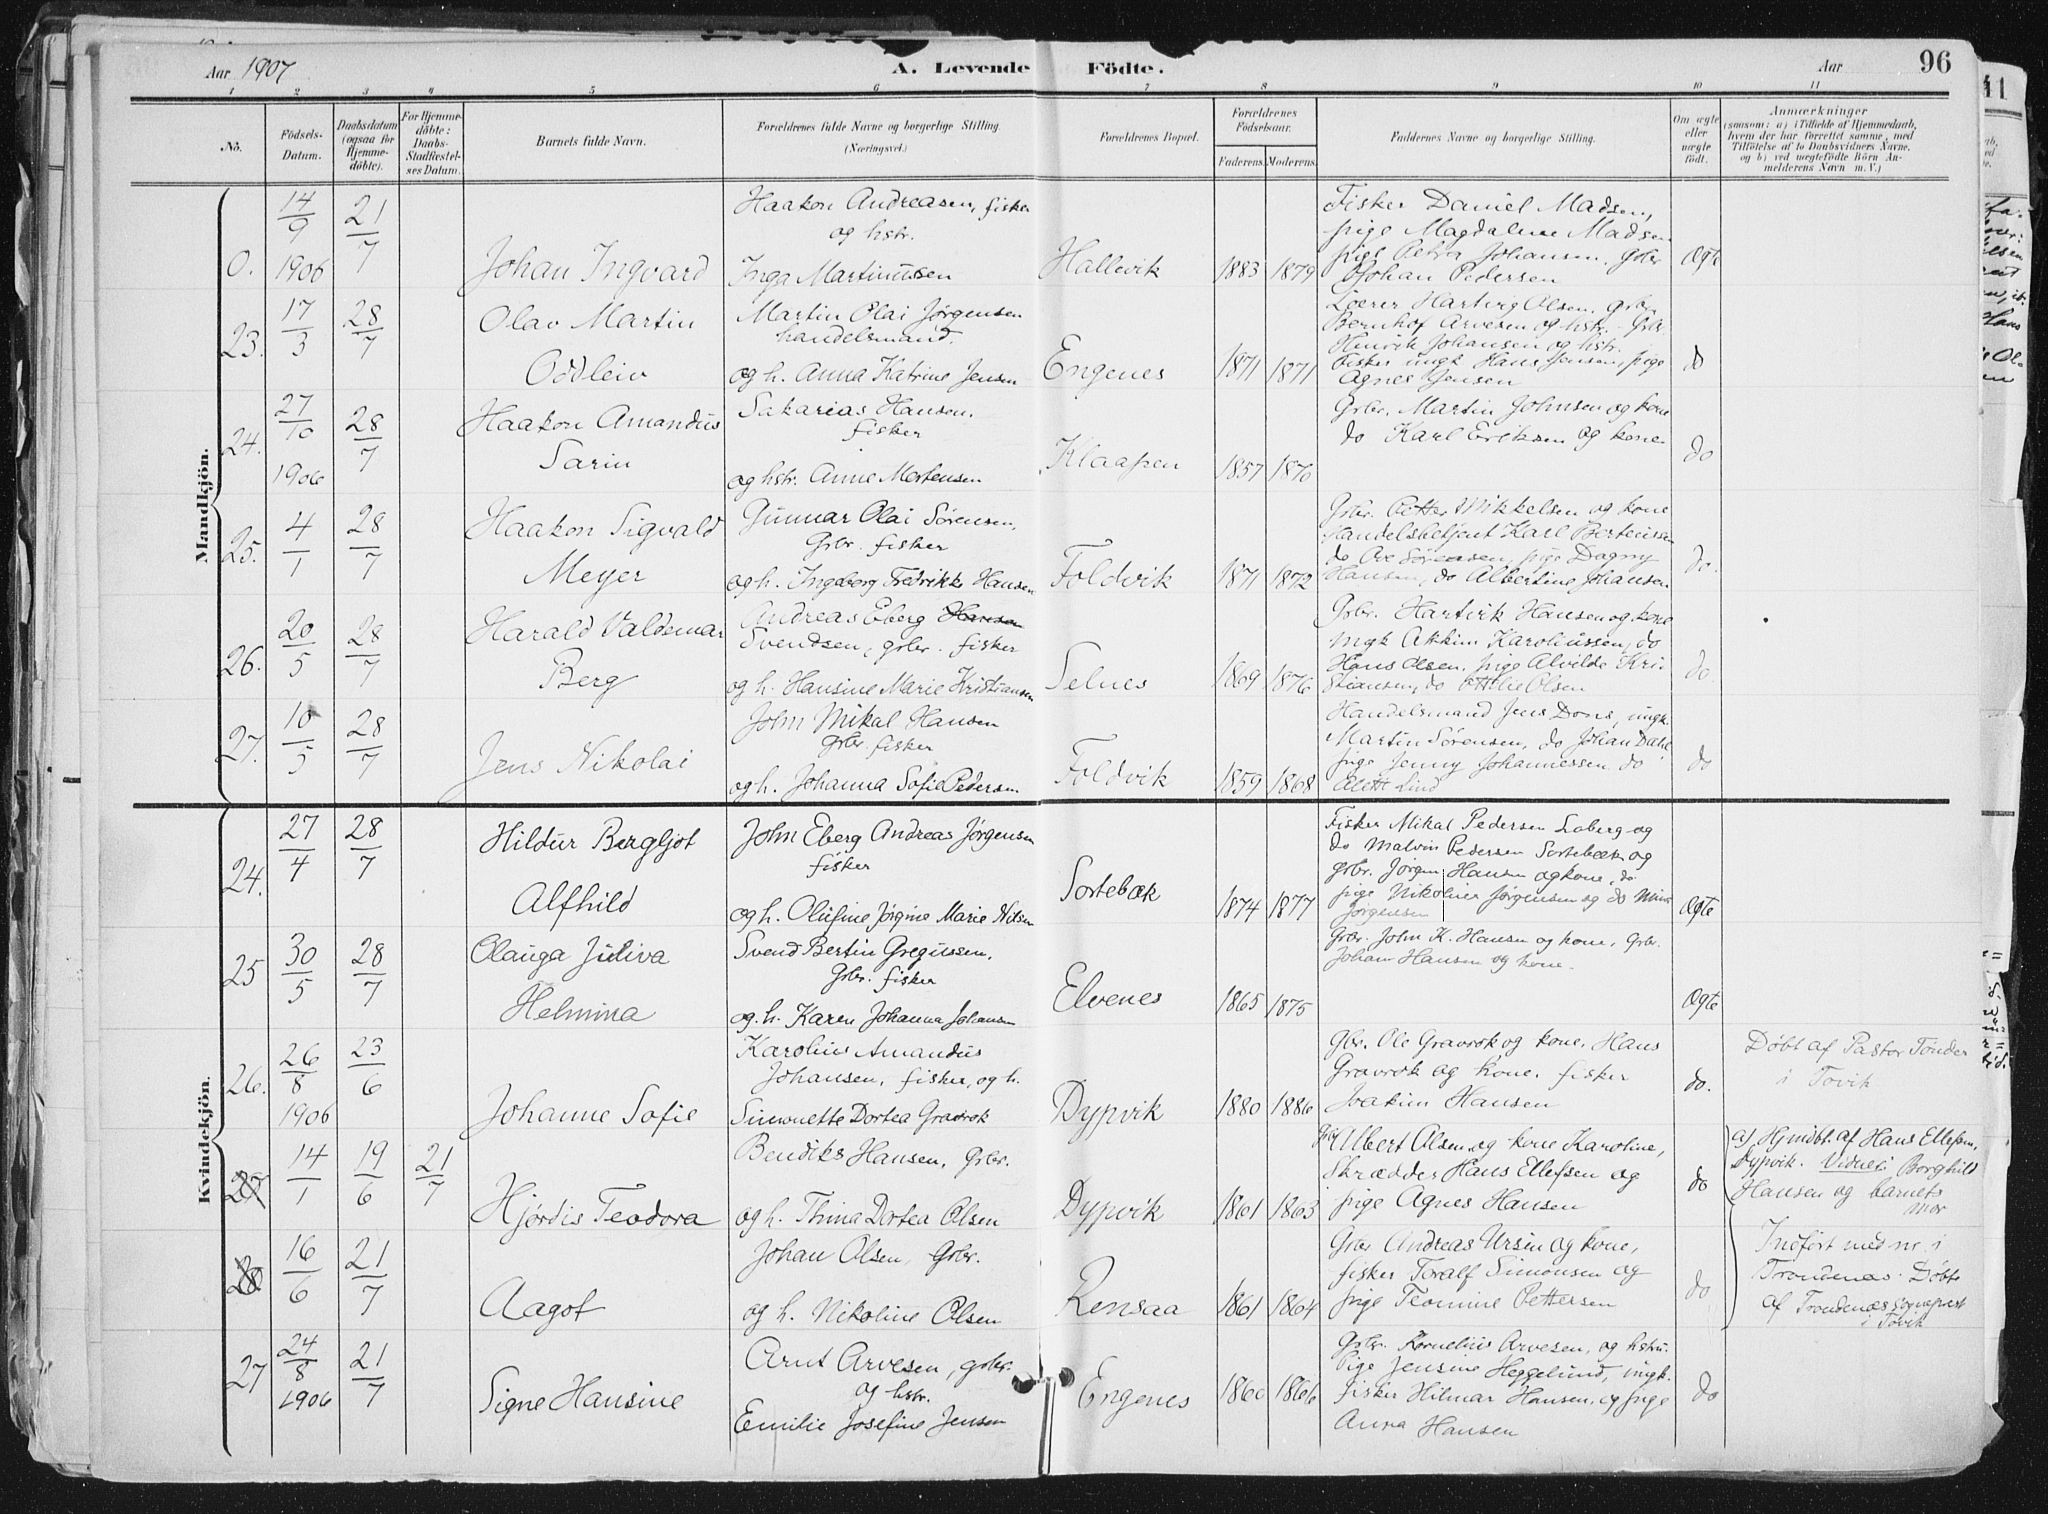 Aar 1907 A. Levende Födte. Aar 96
1 2 3 4 5 6 7 8 9 10 11
No. Födsels-Datum. Daabsdatum (ogsaa for Hjemmedöbte). For Hjemmedöbte: Daabs-Stadfæstelses Datum. Barnets fulde Navn. Forældrenes fulde Navne og borgerlige Stilling. (Næringsvei.) Forældrenes Bopæl. Forældrenes Födselsaar. Faderens. Moderens. Faddernes Navne og borgerlige Stilling. Om ægte eller uægte födt. Anmærkninger (saasom: a) i Tilfælde af Hjemmedaab, hvem der har forrettet samme, med Tilföielse af to Daabsvidners Navne, og b) ved uægtefödte Börn Anmelderens Navn m. V.)
Mandkjön.
0. 14/9 1906 21/7 Johan Ingvard
Haakon Andreasen, fisker
og hstr.
Inga Martinussen
Hallevik 1883 1879
Fisker Daniel Madsen,
pige Magdalene Madsen
pige Petra Johansen, grbr
Johan Pedersen
Ægte
23. 17/3 28/7 Olav Martin
Oddleiv
Martin Olai Jørgensen
handelsmand.
og h. Anna Katrine Jensen
Engenes 1871 1871
Lærer Hartvig Olsen, grbr.
Bernhof Arvesen og hstr. Grbr.
Hinrik Johansen og hstr.
fisker ungk Hans Jensen, pige
Agnes Jensen
do
24. 27/10 1906 28/7 Haakon Amandus
Sarin
Sakarias Hansen,
fisker
og hstr. Anne Mortensen
Klaapen 1857 1870
Grbr. Martin Johnsen og kone
do Karl Eriksen og kone
do
25. 4/1 28/7 Haakon Sigvald
Meyer
Gunnar Olai Sørensen,
Grbr. fisker
og h. Ingeborg Fredrikke Hansen
Foldvik 1871 1872
Grbr. Petter Mikkelsen og kone
Handelsbetjent Karl Berteussen
do Ove Sørensen, pige Dagny
Hansen, do Albertine Johansen
do.
26. 20/5 28/7 Harald Valdemar
Berg
Andreas Eberg Hansen
Svendsen, grbr. fisker
og h. Hansine Marie Kristiansen
Selnes 1869 1876
Grbr. Hartvik Hansen og kone
ungk Attkim Karoliussen, do
Hans Olsen, pige Alvilde Kri-
stiansen, do Ottilie Olsen
do.
27. 10/5 28/7 Jens Nikolai
John Mikal Hansen
Grbr. fisker
og h. Johanna Sofie Pedersen
Foldvik 1859 1868
Handelsmand Jens Dons, ungk.
Martin Sørensen, do Johan Dahl
pige Jenny Johannessen do
Alett Lind
do
Kvindekjön.
24. 27/4 28/7 Hildur Bergljot
Alfhild
John Eberg Andreas Jørgensen
fisker
og h. Olufine Jørgine Marie Nilsen
Sortebæk 1874 1877
Fisker Mikal Pedersen Loberg og
do Malvin Pedersen Sortebæk og
grbr. Jørgen Hansen og kone, do
pige Nikoline Jørgensen og do Mina
Jørgensen
Ægte
25 30/5 28/7 Olauga Juliva
Helmina
Svend Bertin Gregussen,
Grbr. fisker
og h. Karen Johanna Johansen
Elvenes 1865 1875
Grbr. John K. Hansen og kone, Grbr.
Johan Hansen og kone.
Ægte
26. 26/8 1906 23/6 Johanne Sofie
Karolius Amandus
Johansen, fisker, og h.
Simonette Dortea Gravrok
Dypvik 1880 1886
Gbr. Ole Gravrok og kone, Hans
Gravrok og kone, fisker
Joakim Hansen
do.
Døbt af Pastor Tønder
i Tovik
27 14/1 19/6 21/7 Hjørdis Teodora
Bendiks Hansen, Grbr.
og h. Thina Dortea Olsen
Dypvik 1861 1863
Grbr Albert Olsen og kone Karoline,
Skrædder Hans Ellefsen og
pige Agnes Hansen
do
a) Hjmdbt. af Hans Ellefsen,
Dypvik. Vidner: Borghild
Hansen og barnets
mor
28 16/6 21/7 Aagot
Johan Olsen, Grbr.
og h. Nikoline Olsen
Rensaa 1861 1864
Grbr Andreas Ursin og kone,
fisker Toralf Simonsen og
pige Teomine Pettersen
do
Indført med nr. i
Trondenas. Døbt
af Trondenas sogneprest
i Tovik
27 24/8 1906 21/7 Signe Hansine
Arnt Arvesen, grbr.
og hstr.
Emilie Josefine Jensen
Engenes 1860 1866
Grbr. Kornelius Arvesen, og hstru
Pige Jensine Heggelund, ungk.
fisker Hilmar Hansen, og pige
Anna Hansen
do